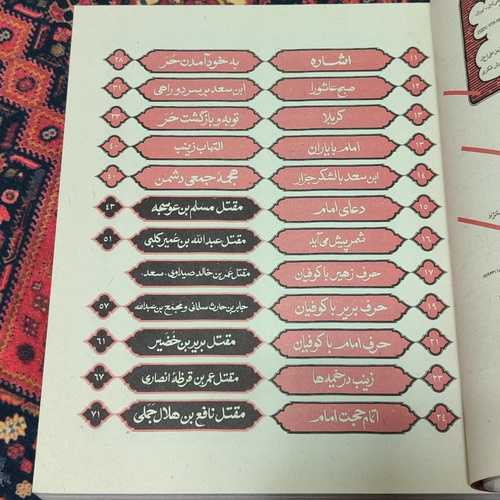 اشاره ۱۱
صبح عاشورا ۱۲
کربلا ۱۳
امام با یاران ۱۳
ابن سعد با لشکر جرار ۱۴
دعای امام ۱۵
شمر پیش می‌آید ۱۶
حرف زهیر با کوفیان ۱۷
حرف بریر با کوفیان ۱۹
حرف امام با کوفیان ۲۱
زینب در خیمه‌ها ۲۳
اتمام حجت امام ۲۴
به خود آمدن حُر ۲۸
ابن سعد بر سر دو راهی ۳۱
توبه و بازگشت حُر ۳۳
التهاب زینب ۴۰
هجمهٔ جمعی دشمن ۴۰
مقتل مسلم بن عوسجه ۴۳
مقتل عبدالله بن عُمیر کلبی ۵۱
مقتل عمر بن خالد صیداوی، سعد،
جابر بن حارث سلمانی و مجمّع بن عبدالله ۵۷
مقتل بریر بن خُضَیر ۶۱
مقتل عمر بن قرظهٔ انصاری ۶۷
مقتل نافع بن هلال جَمَلی ۷۱